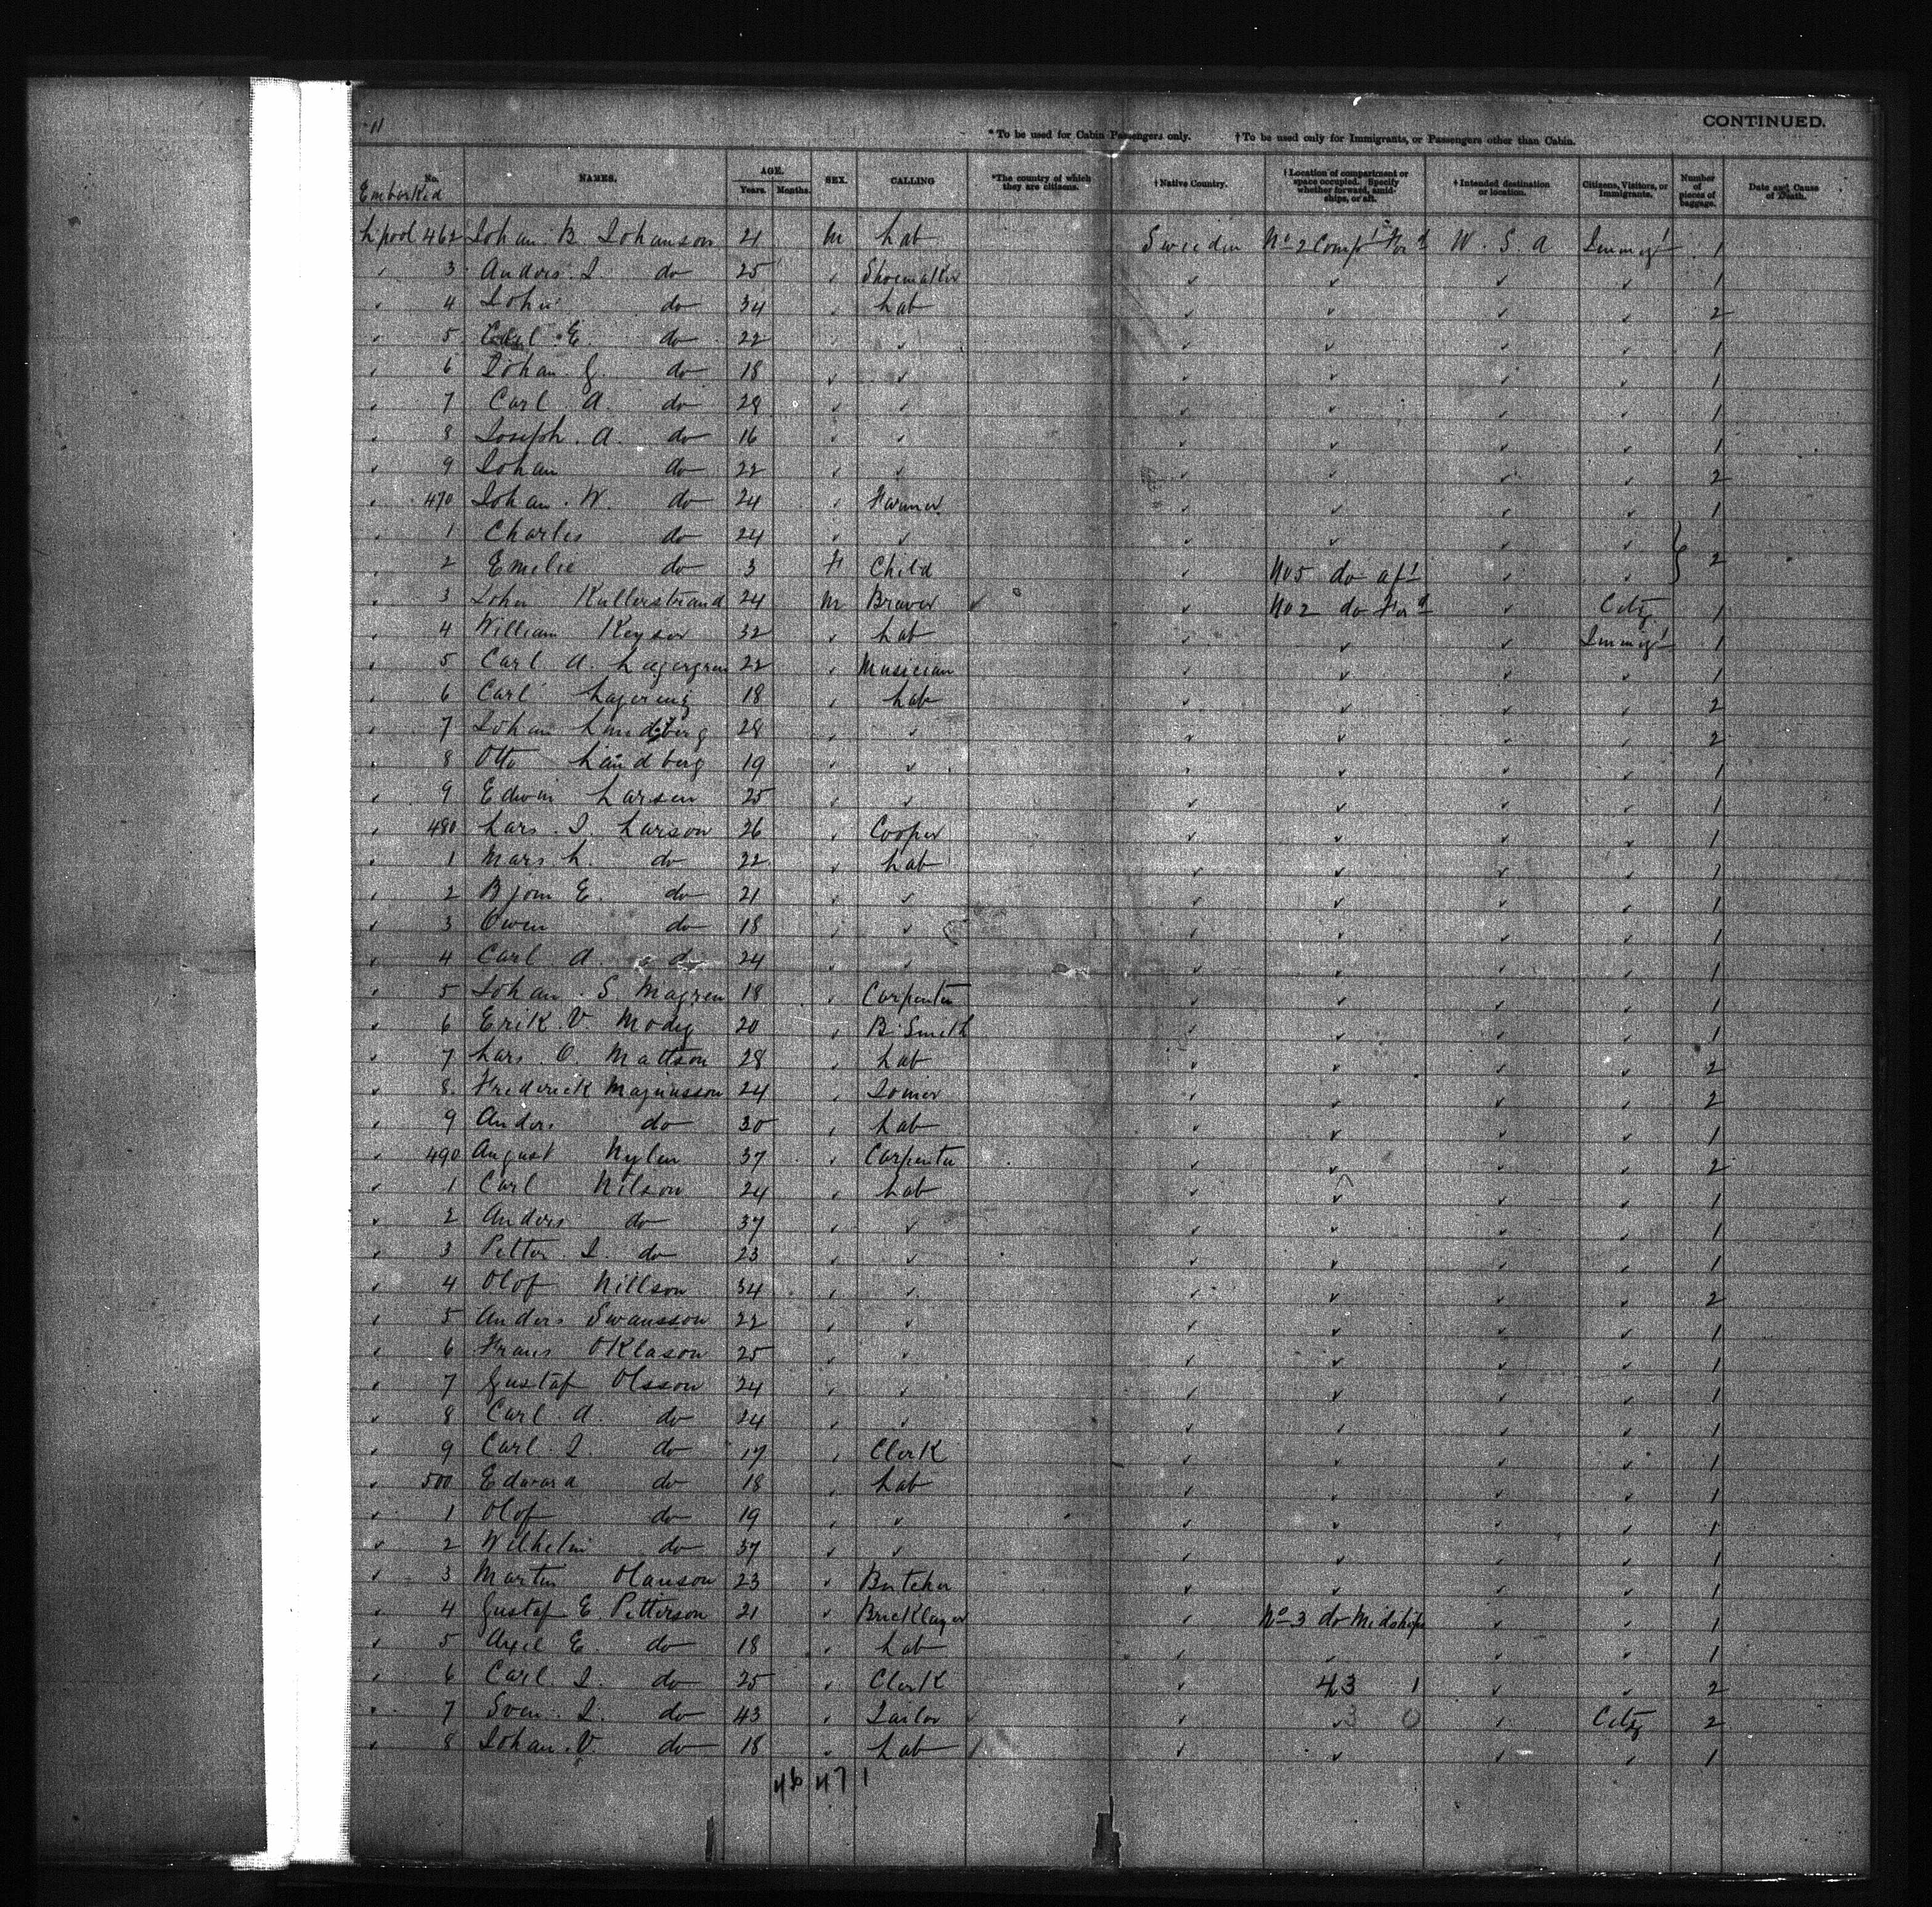 11
CONTINUED.
*To be used for Cabin Passengers only. †To be used only for Immigrants, or Passengers other than Cabin.
No. NAMES. AGE. Years. Months. SEX. CALLING *The country of which they are citizens. †Native Country. †Location of compartment or space occupied. Specify whether forward, amidships, or aft. †Intended destination or location. Citizens, Visitors, or Immigrants. Number of pieces of baggage. Date and Cause of Death.
Embarked
L'pool 462 Johan B Johanson 21 M Lab Sweeden No 2 Compt For'd U.S.A Immigt 1
3 Anders J. do 25 Shoemaker ✓ ✓ ✓ ✓ 1
4 John do 34 Lab ✓ ✓ ✓ ✓ 2
5 Carl E. do 22 ✓ ✓ ✓ ✓ ✓ 1
6 Johan G. do 18 ✓ ✓ ✓ ✓ ✓ ✓ 1
7 Carl A. do 28 ✓ ✓ ✓ ✓ ✓ ✓ 1
8 Joseph A. do 16 ✓ ✓ ✓ ✓ ✓ ✓ 1
9 Johan do 22 ✓ ✓ ✓ ✓ ✓ ✓ 2
470 Johan W. do 24 Farmer ✓ ✓ ✓ ✓ 1
1 Charles do 24 ✓ ✓ ✓ ✓ ✓ ✓
2 Emelie do 3 F Child ✓ No 5 do aft ✓ ✓ 2
3 John Kullerstrand 24 M Brewer ✓ ✓ No 2 do For'd ✓ City 1
4 William Keyser 32 ✓ Lab ✓ ✓ ✓ Immigt 1
5 Carl A. Lagergren 22 ✓ Musician ✓ ✓ ✓ ✓ 1
6 Carl 18 ✓ Lab ✓ ✓ ✓ ✓ 2
7 Johan Landberg 28 ✓ ✓ ✓ ✓ ✓ ✓ 2
8 Otto Landberg 19 ✓ ✓ ✓ ✓ ✓ ✓ 1
9 Edwin Larsen 25 ✓ ✓ ✓ ✓ ✓ ✓ 1
480 Lars J. Larson 26 ✓ Cooper ✓ ✓ ✓ ✓ 1
1 Mars L. do 22 ✓ Lab ✓ ✓ ✓ ✓ 1
2 Bjorn E. do 21 ✓ ✓ ✓ ✓ ✓ ✓ 1
3 Owen do 18 ✓ ✓ ✓ ✓ ✓ ✓ 1
4 Carl A. do 24 ✓ ✓ ✓ ✓ ✓ ✓ 1
5 Johan S Magren 18 ✓ Carpenter ✓ ✓ ✓ ✓ 1
6 Erik V. Modig 20 ✓ B. Smith ✓ ✓ ✓ ✓ 1
7 Lars O. Mattson 28 ✓ Lab ✓ ✓ ✓ ✓ 2
8 Frederick Magnusson 24 ✓ Joiner ✓ ✓ ✓ ✓ 2
9 Anders do 30 ✓ Lab ✓ ✓ ✓ ✓ 1
490 August Nylen 37 ✓ Carpenter ✓ ✓ ✓ ✓ 2
1 Carl Nilson 24 ✓ Lab ✓ ✓ ✓ ✓ 1
2 Anders do 37 ✓ ✓ ✓ ✓ ✓ ✓ 1
3 Petter J. do 23 ✓ ✓ ✓ ✓ ✓ ✓ 1
4 Olof Nillson 34 ✓ ✓ ✓ ✓ ✓ ✓ 2
5 Anders Swansson 22 ✓ ✓ ✓ ✓ ✓ ✓ 1
6 Frans OKlason 25 ✓ ✓ ✓ ✓ ✓ ✓ 1
7 Gustaf Olsson 24 ✓ ✓ ✓ ✓ ✓ ✓ 1
8 Carl A. do 24 ✓ ✓ ✓ ✓ ✓ ✓ 1
9 Carl J. do 17 ✓ Clerk ✓ ✓ ✓ ✓ 1
500 Edward do 18 ✓ Lab ✓ ✓ ✓ ✓ 1
1 Olof do 19 ✓ ✓ ✓ ✓ ✓ ✓ 1
2 Wilhelm do 37 ✓ ✓ ✓ ✓ ✓ ✓ 1
3 Martin Olauson 23 ✓ Butcher ✓ ✓ ✓ ✓ 1
4 Gustaf E Petterson 21 ✓ Bricklayer ✓ No 3 do Midships ✓ ✓ 1
5 Axel E. do 18 ✓ Lab ✓ ✓ ✓ ✓ 1
6 Carl J. do 25 ✓ Clerk ✓ 43 1 ✓ ✓ 2
7 Sven J. do 43 ✓ Tailor ✓ ✓ 3 0 ✓ City 2
8 Johan V. do 18 ✓ Lab ✓ ✓ ✓ ✓ 1
46 47 1